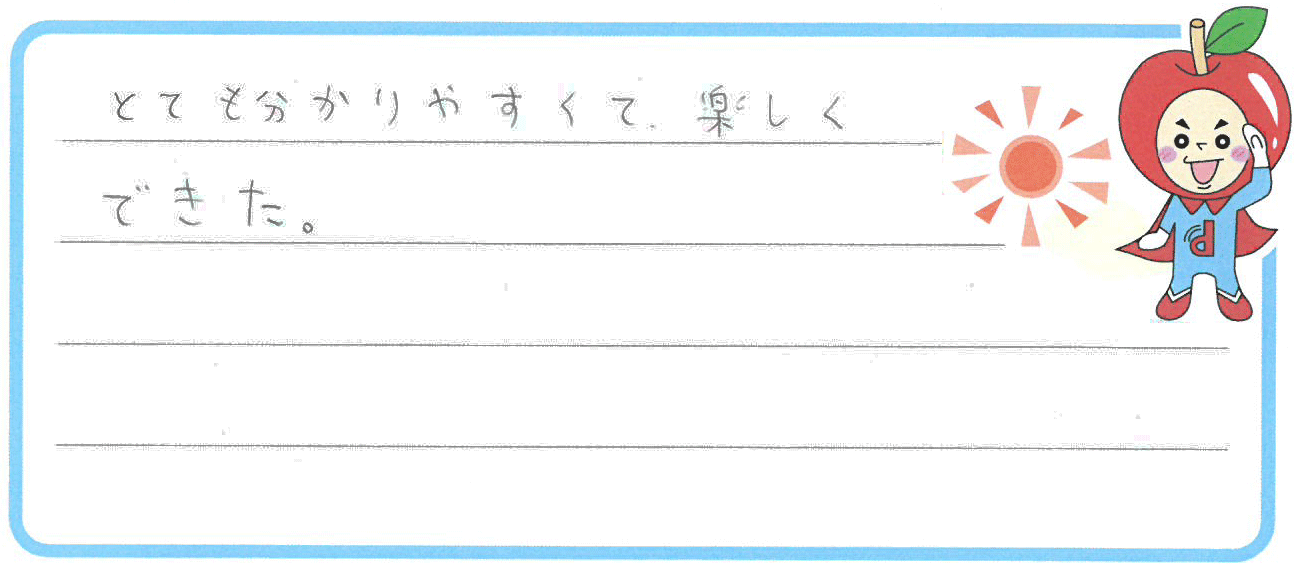 とても分かりやすくて、楽しく
できた。
d